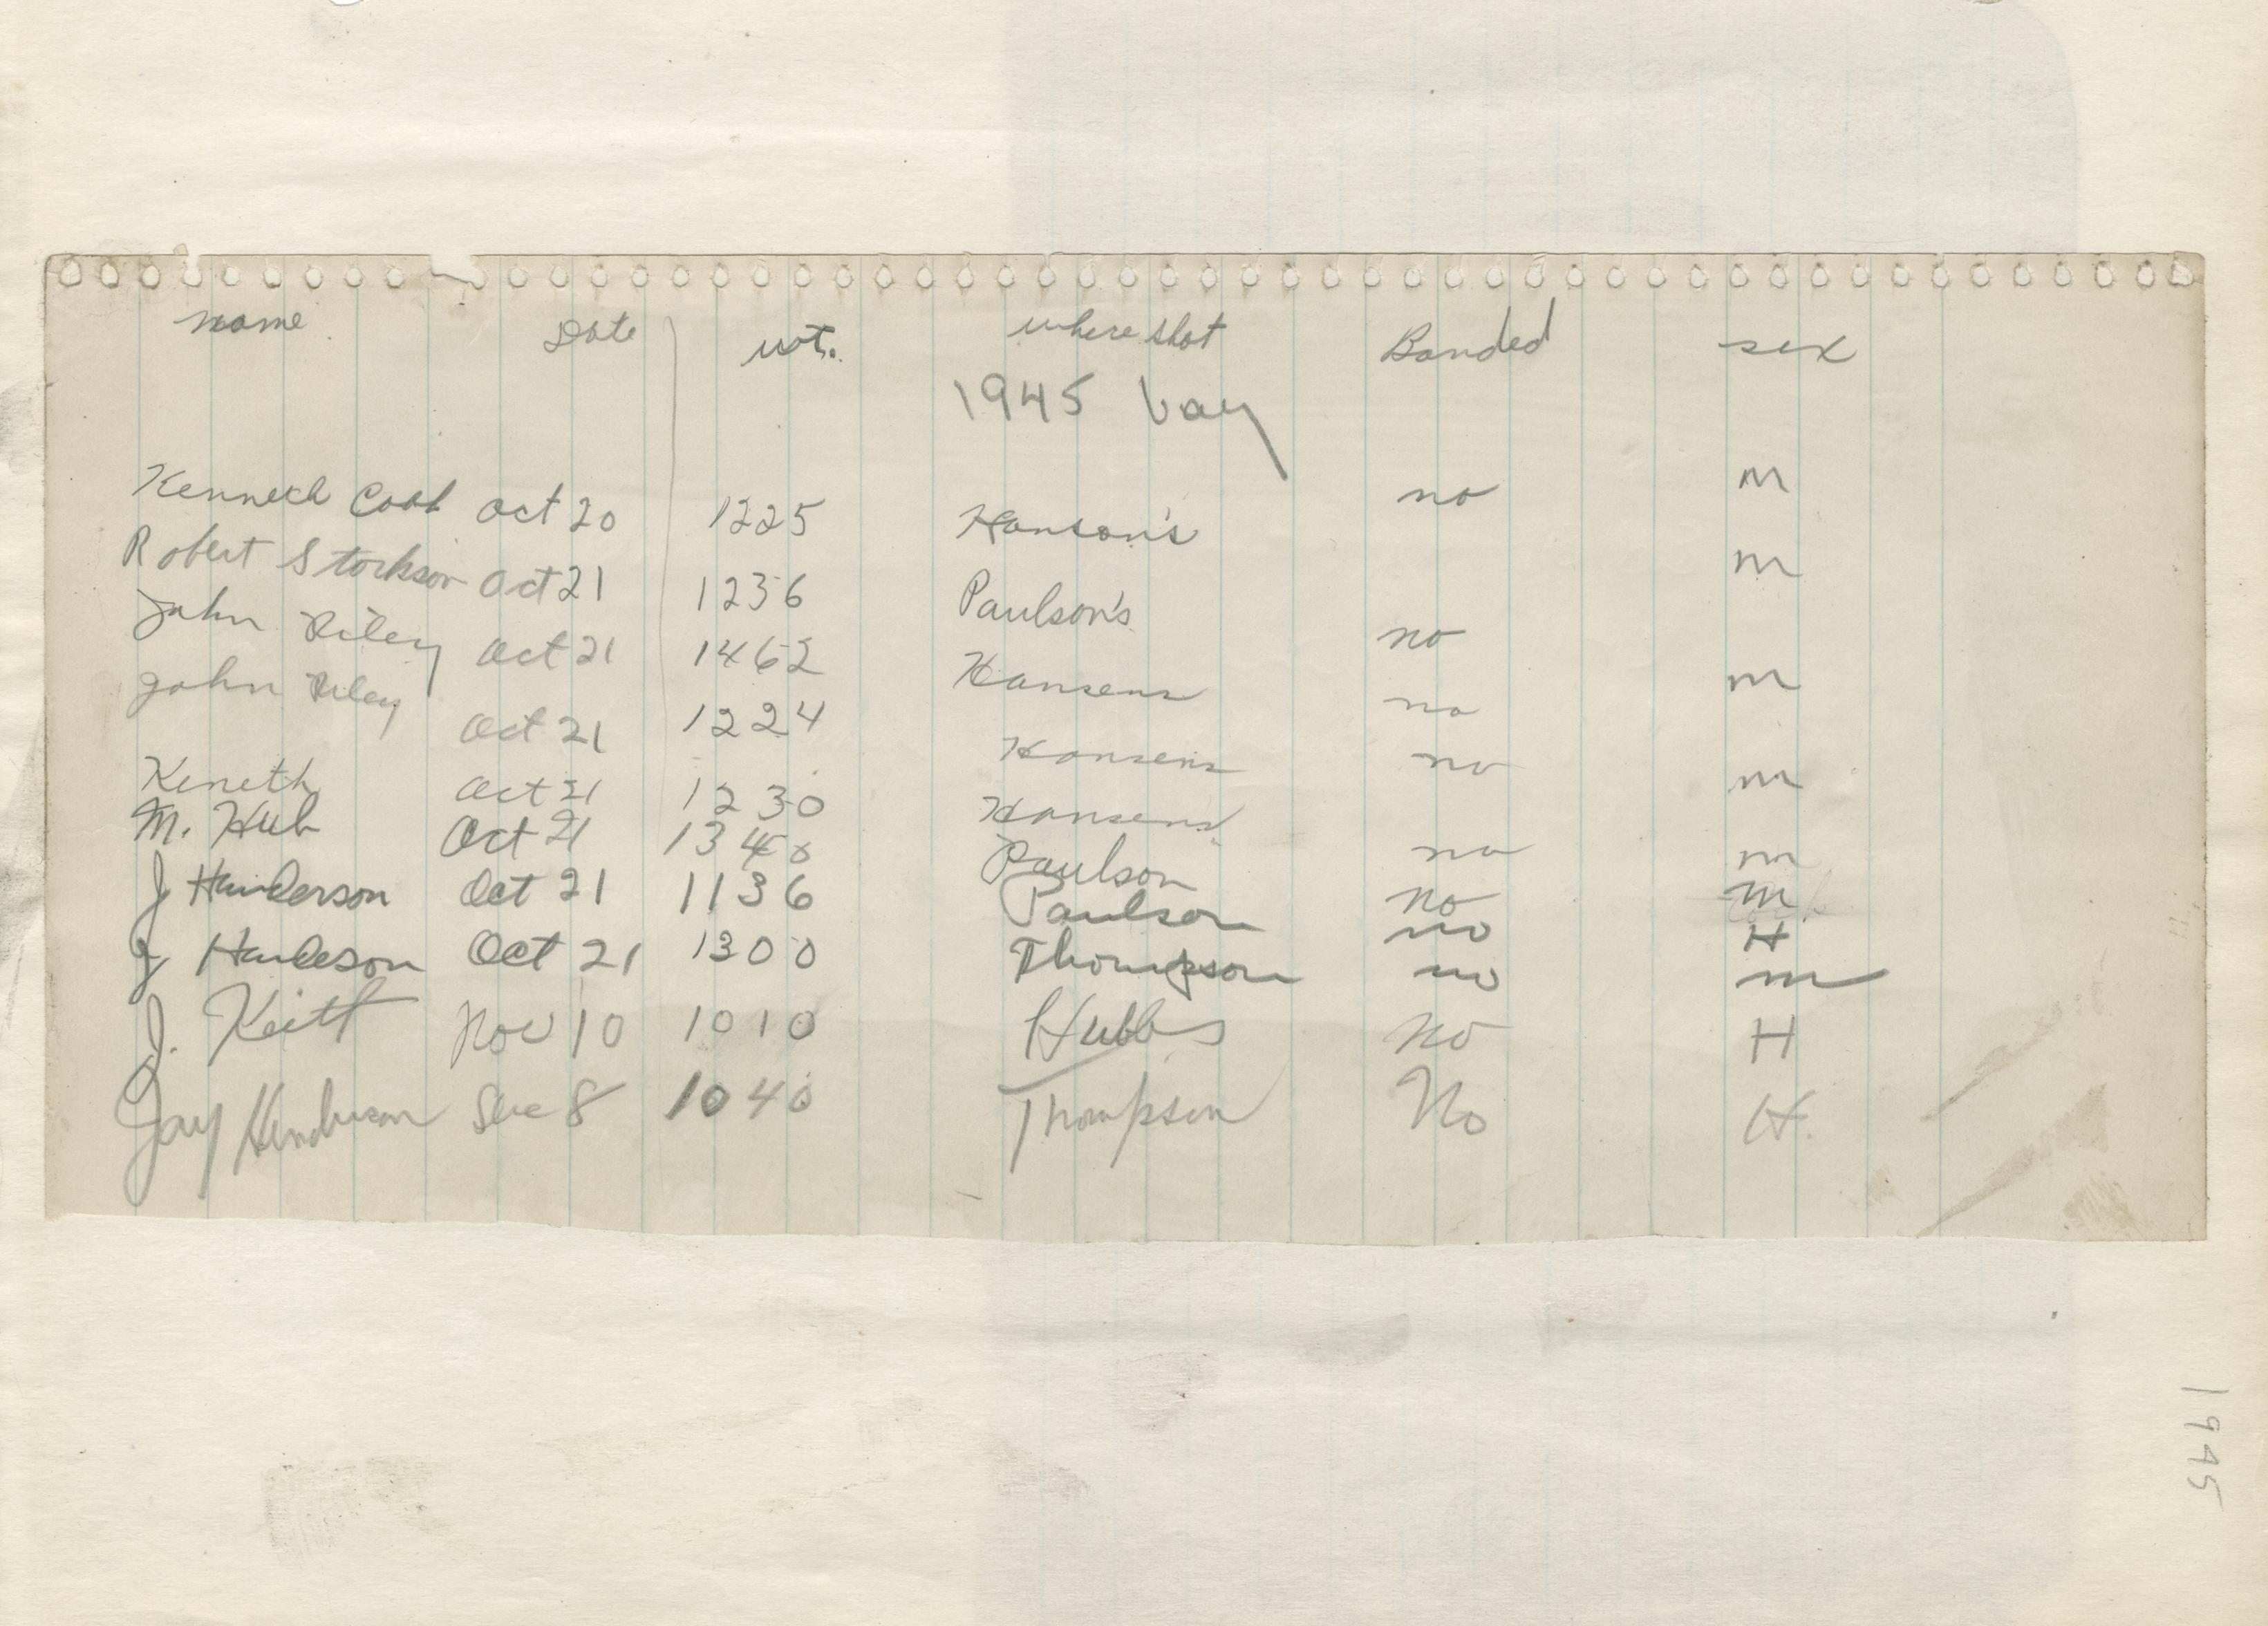 name Date wt. where shot Banded sex
1945 bag
Kenneth Oct 20 1225 Hanson's no m
Robert Oct 21 1236 Paulson's no m
John Riley Oct 21 1462 Hansens no m
John Riley Oct 21 1224 Hansens no m
Keneth Oct 21 1230 Hansens no m
M. Hub Oct 21 Paulson no m
J Henderson Oct 21 1136 Paulson no H
J Oct 21 1300 Thompson no m
J. Keith Nov 10 1010 Hubbs No H
Jay Henderson Dec 8 1040 Thompson No H.
1945